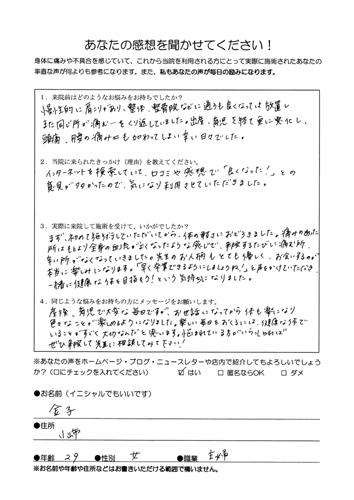 あなたの感想を聞かせてください！
身体に痛みや不具合を感じていて、これから当院を利用される方にとって実際に施術されたあなたの
率直な声が何よりも参考になります。また、私もあなたの声が毎日の励みになります。
1．来院前はどのようなお悩みをお持ちでしたか？
慢性的に肩こりがあり、整体、整骨院などに通うも良くなっては放置し
また同じ所が痛む…をくり返していました。出産、育児を経て更に悪化し、
頭痛、腰の痛みにも加わってしまい辛い日々でした。
2．当院に来られたきっかけ（理由）を教えてください。
インターネットを検索していて、口コミや感想で「良くなった！」との
意見が多かったので、気になり利用させていただきました。
3．実際に来院して施術を受けて、いかがでしたか？
まず、初めて施術していただいてから、体の軽さにおどろきました。痛みの出た
所はもとより全身の血流が良くなったような感じで、来院するたびに痛む所、
辛い所がなくなっていきました。先生のお人柄もとても優しく、お会いするのが
本当に楽しみになります。「早く卒業できるようにしましょうね！」と声をかけていただき、
一緒に健康な体を目指そう！という気持ちになりました。
4．同じような悩みをお持ちの方にメッセージをお願いします。
産後、育児で大変な毎日ですが、お世話になってから体も楽になり
色々なことが楽しめるようになりました。楽しい毎日をおくるには、健康な体で
いることがすごく大切なんだと思います。悩まれている方がいらっしゃれば
ぜひ来院して先生に相談してみて下さい！
※あなたの声をホームページ・ブログ・ニュースレターや店内で紹介してもよろしいでしょう
か？（口にチェックを入れてください） ☑ はい □ 匿名ならOK □ ダメ
●お名前（イニシャルでもいいです）
金子
●住所
●年齢 29 ●性別 女 ●職業 主婦
※お名前や年齢や住所などはお書きいただける範囲で構いません。